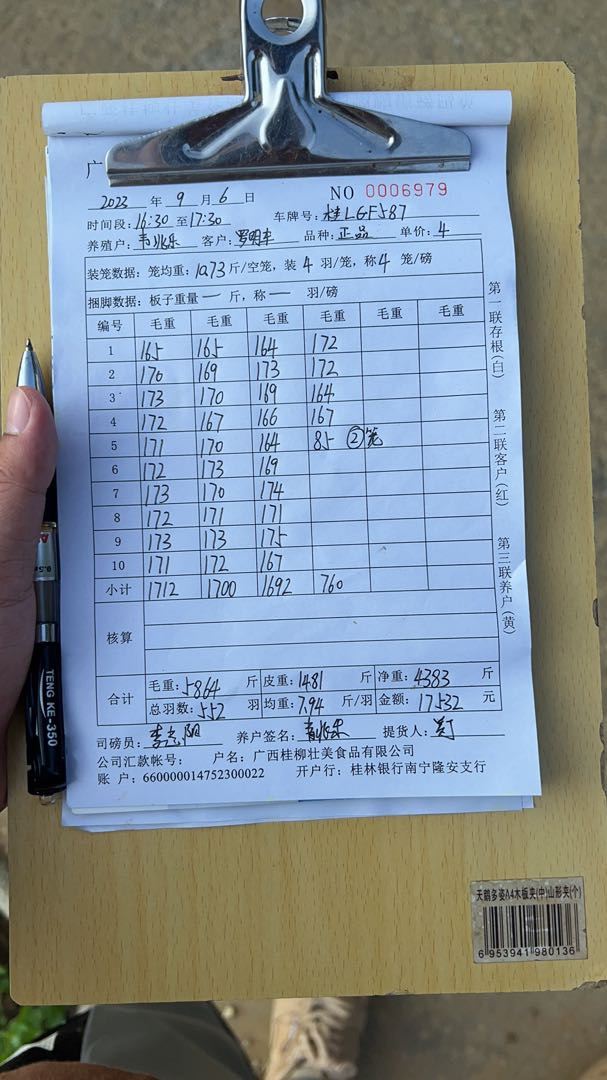 广
2023 年 9 月 6 日 NO 0006979
时间段: 16:30 至 17:30 车牌号: 桂LGF587
养殖户: 客户: 罗明丰 品种: 正品 单价: 4
装笼数据: 笼均重: 10.73 斤/空笼, 装 4 羽/笼, 称 4 笼/磅
捆脚数据: 板子重量 一 斤, 称 一 羽/磅
编号 毛重 毛重 毛重 毛重 毛重 毛重
1 165 165 164 172
2 170 169 173 172
3 173 170 169 164
4 172 167 166 167
5 171 170 164 85 ②笼
6 172 173 169
7 173 170 174
8 172 171 171
9 173 173 175
10 171 172 167
小计 1712 1700 1692 760
核算
合计 毛重: 5864 斤 皮重: 1481 斤 净重: 4383 斤
总羽数: 552 羽 均重: 7.94 斤/羽 金额: 17532 元
司磅员: 李志阳 养户签名: 提货人:
公司汇款帐号: 户名: 广西桂柳壮美食品有限公司
账 户: 660000014752300022 开户行: 桂林银行南宁隆安支行
第一联存根(白)
第二联客户(红)
第三联养户(黄)
TENG KE-350
天鹅多姿A4木板夹(中)山形夹(个)
6 953941 980136